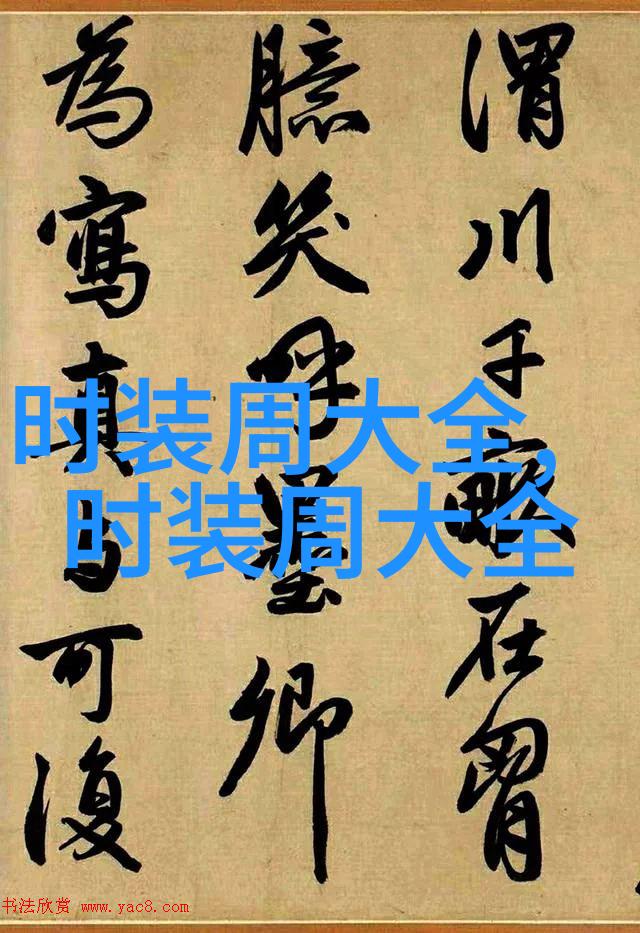 渭川千畝在胷
臆笑呼墨卿
為寫真与可復
时装周大全,
时装周大全
书法欣赏 www.yac8.com